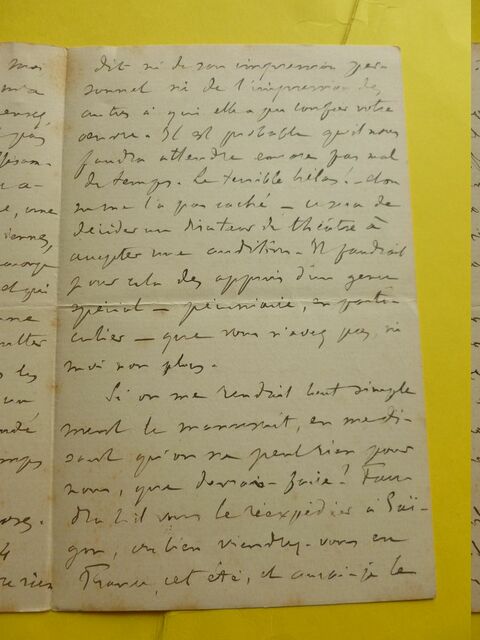 moi
m'a
pas
a-
une
et qui
les
un
4
rien
dit ni de son impression per-
sonnel ni de l'impression des
autres à qui elle a pu confier votre
œuvre. Il est probable qu'il nous
faudra attendre encore pas mal
de temps. Le terrible hélas! - don
ne me l'a pas caché - sera de
décider un directeur de théâtre à
accepter une audition. Il faudrait
pour cela des appuis d'un genre
spécial - pécuniaire, en parti-
culier - que vous n'avez pas, ni
moi non plus.
Si on me rendait tout simple
ment le manuscrit, en me di-
sant qu'on ne peut rien pour
nous, que devrais-je faire? Fau
dra-t-il vous le réexpédier à Saï-
gon, ou bien viendrez-vous en
France, cet été, et aurai-je le